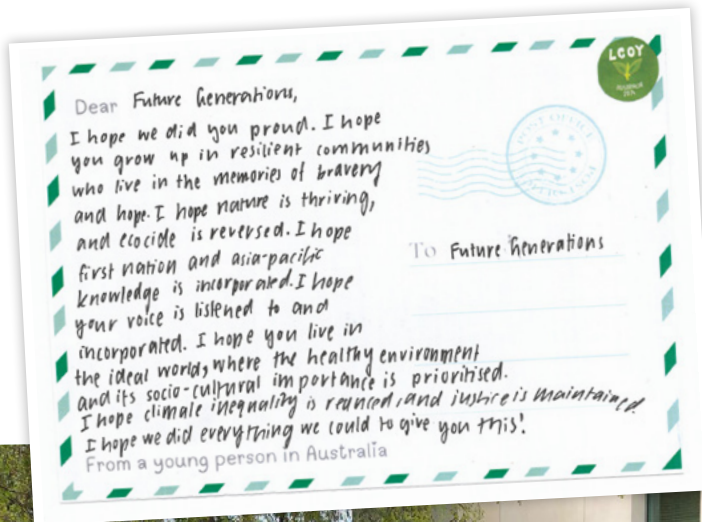 LCOY
AUSTRALIA
POST OFFICE
Dear Future Generations,
I hope we did you proud. I hope
you grow up in resilient communities
who live in the memories of bravery
and hope. I hope nature is thriving,
and ecocide is reversed. I hope
first nation and asia-pacific
knowledge is incorporated. I hope
your voice is listened to and
incorporated. I hope you live in
the ideal world, where the healthy environment
and its socio-cultural importance is prioritised.
I hope climate inequality is reduced, and justice is maintained.
I hope we did everything we could to give you this!
From a young person in Australia
To Future Generations